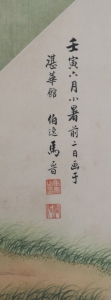 壬寅六月小暑前二日画于
湛華館 伯逸馬晋